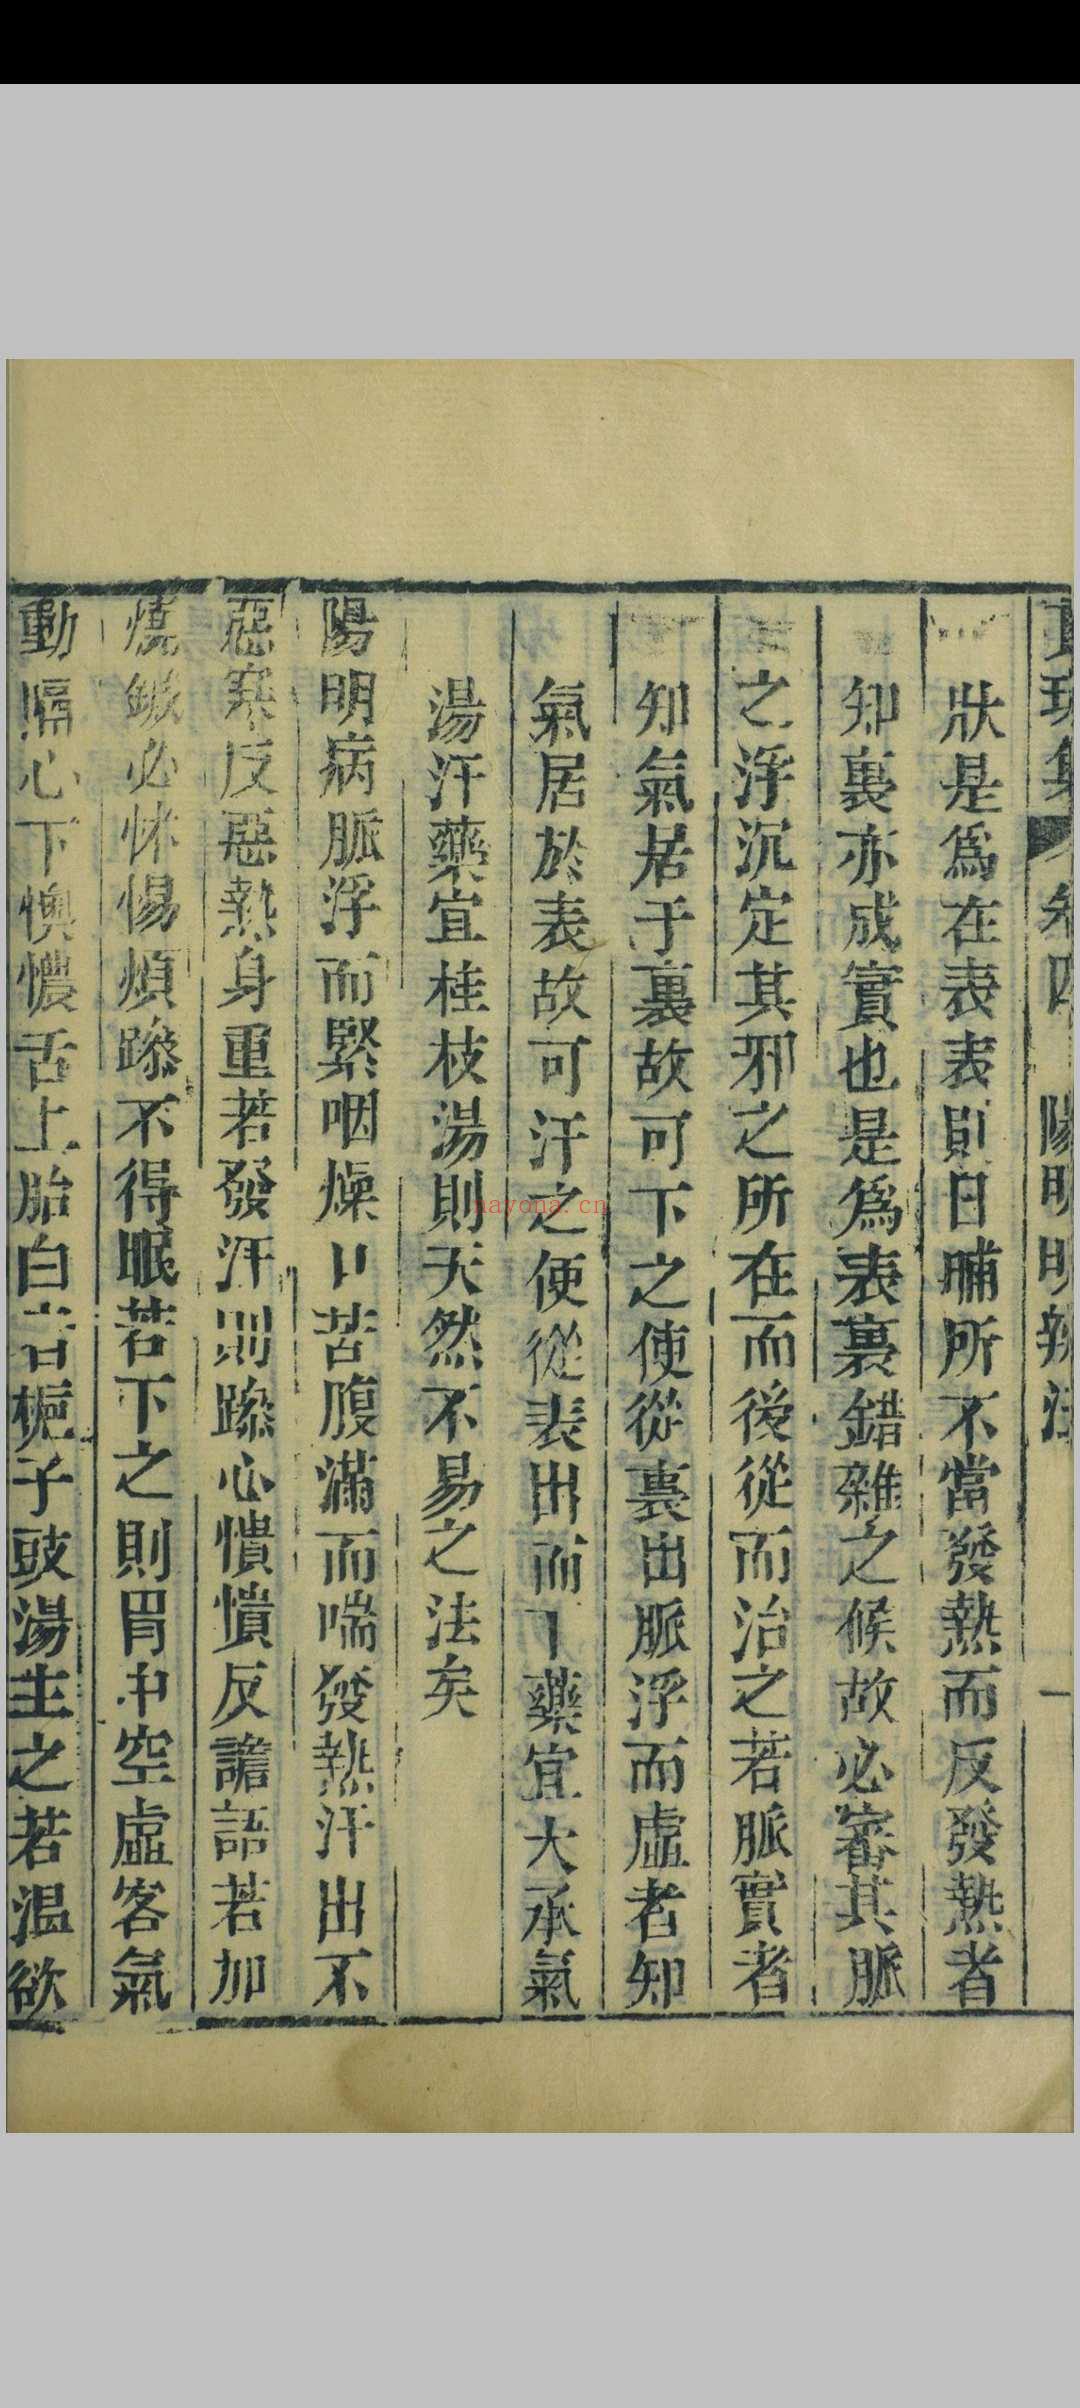 集 卷四 陽明明辨注 一
狀是爲在表表則日晡所不當發熱而反發熱者
知裏亦成實也是爲表裏錯雜之候故必審其脈
之浮沉定其邪之所在而後從而治之若脈實者
知氣居于裏故可下之使從裏出脈浮而虛者知
氣居於表故可汗之使從表出而下藥宜大承氣
湯汗藥宜桂枝湯則天然不易之法矣
陽明病脈浮而緊咽燥口苦腹滿而喘發熱汗出不
惡寒反惡熱身重若發汗則躁心憒憒反譫語若加
燒鍼必怵惕煩躁不得眠若下之則胃中空虛客氣
動膈心下懊憹舌上胎白者梔子豉湯主之若渴欲
nayona.cn